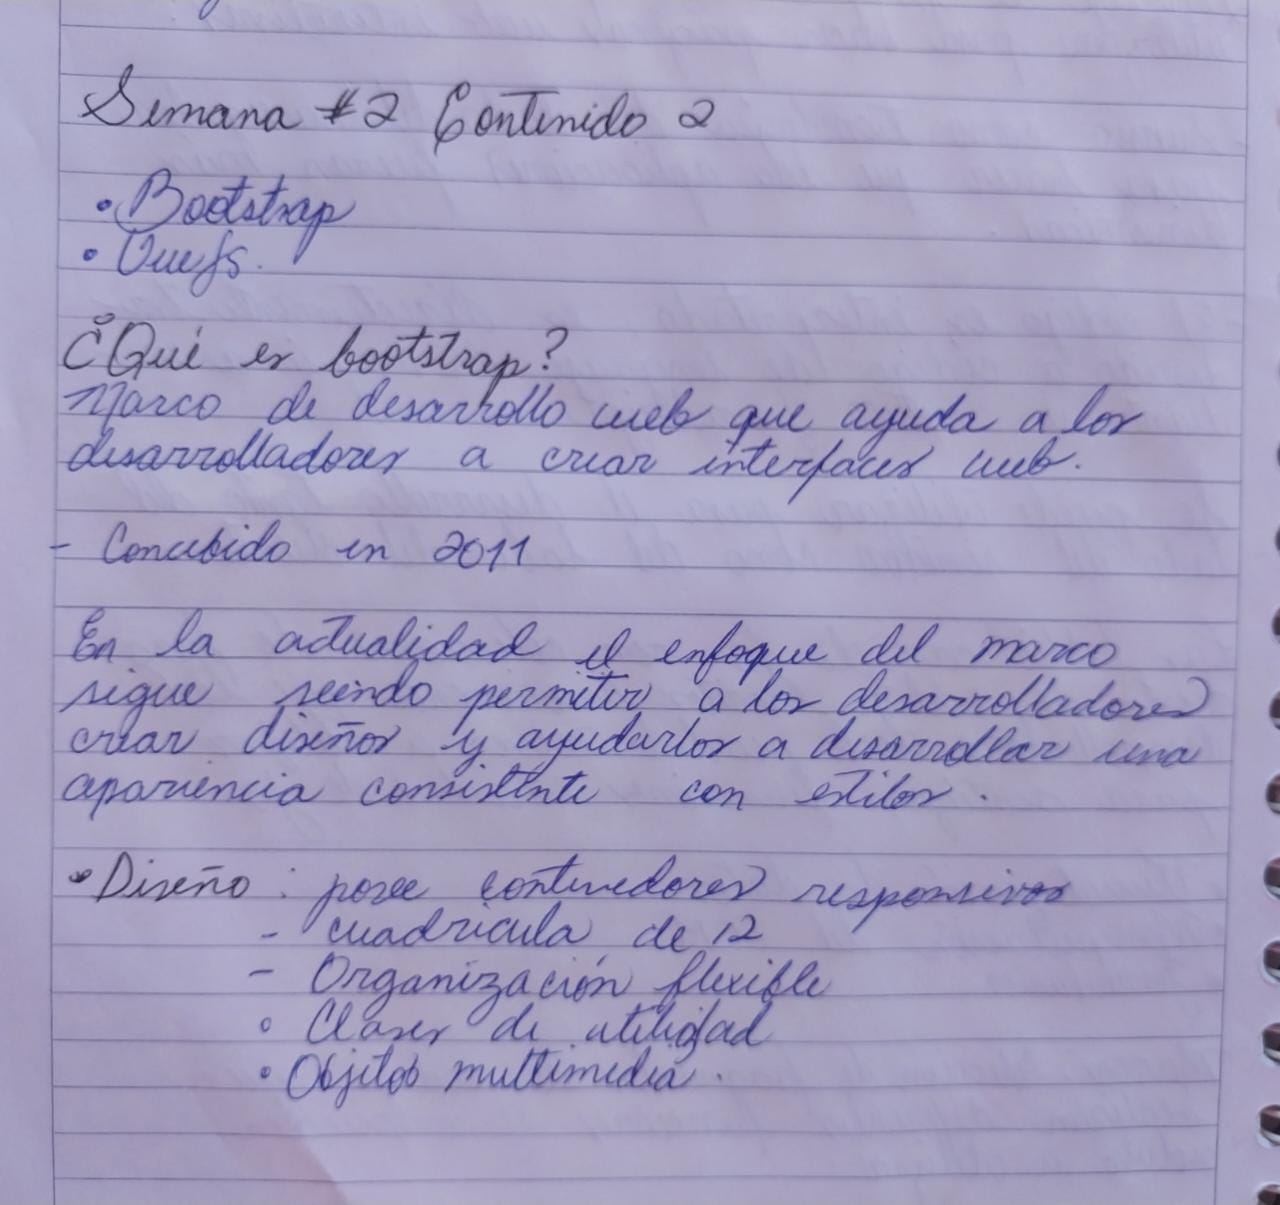 Semana #2 Contenido 2
• Bootstrap
• Vuejs.
¿Qué es bootstrap?
Marco de desarrollo web que ayuda a los
desarrolladores a crear interfaces web.
- Concebido en 2011
En la actualidad el enfoque del marco
sigue seindo permitir a los desarrolladores
crear diseños y ayudarlos a desarrollar una
apariencia consistente con estilos.
• Diseño : posee contenedores responsivos
- cuadrícula de 12
- Organización flexible
• Clases de utilidad
• Objetos multimedia.